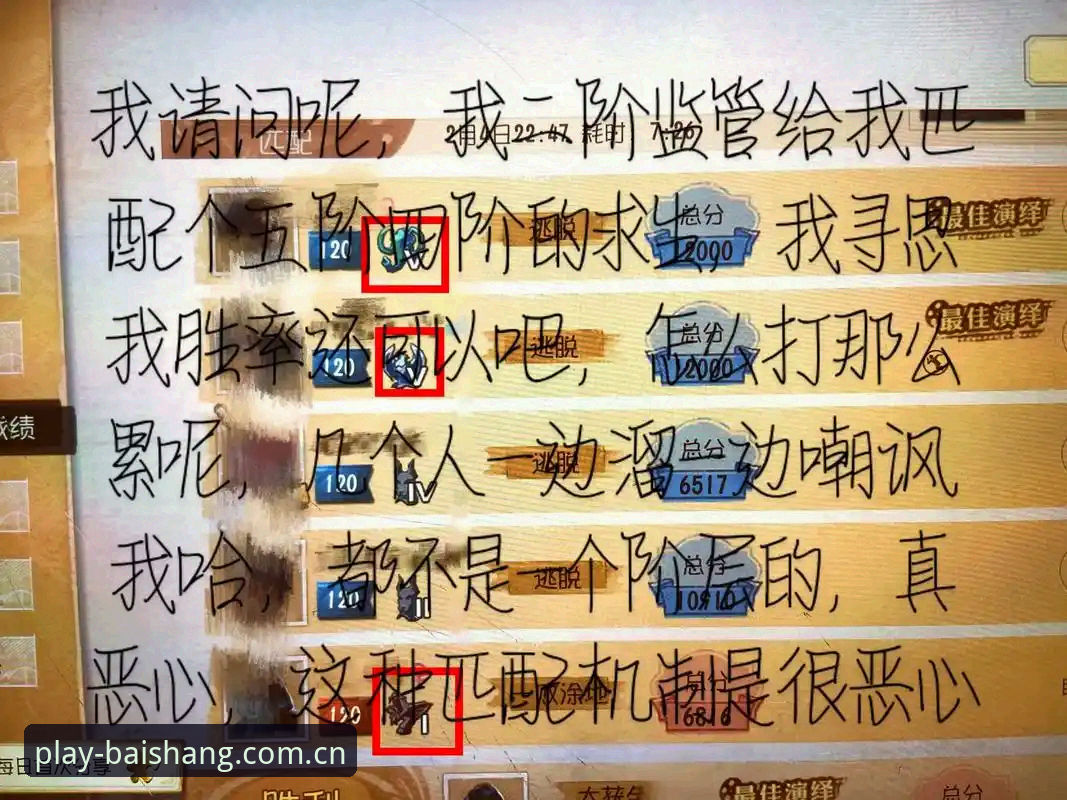 我请问呢，我二阶监管给我匹
匹配
22:47 耗时 7:26
配个五阶四阶的求生，我寻思
120 逃脱 总分 最佳演绎
我胜率还可以吧，怎么打那么
120 逃脱 总分 最佳演绎
累呢，几个人一边溜一边嘲讽
120 IV 逃脱 总分 6517
成绩
我哈，都不是一个阶层的，真
120 II 逃脱 总分 10910
恶心，这种匹配机制是很恶心
120 I 总分 6816
play-baishang.com.cn
胜利 最佳演绎 总分